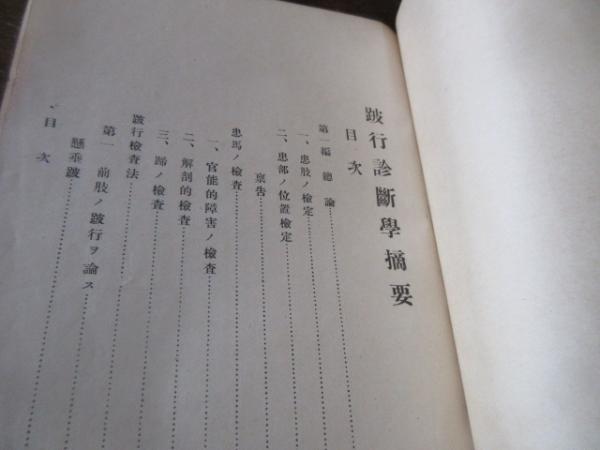 跛行診斷學摘要
目次
第一編 總論
一、患肢ノ檢定
二、患部ノ位置檢定
稟告
患馬ノ檢査
一、官能的障害ノ檢査
二、解剖的檢査
三、蹄ノ檢査
跛行檢査法
第一 前肢ノ跛行ヲ論ス
懸垂跛
目次